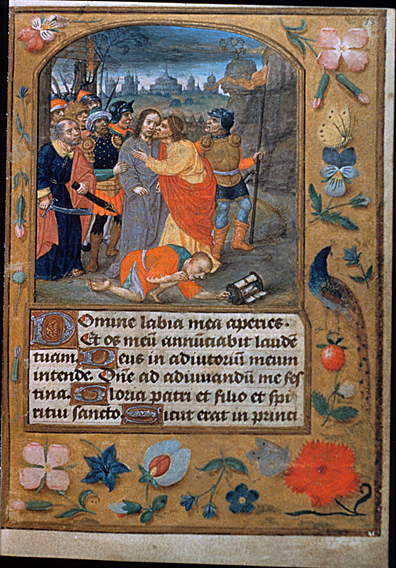 Domine labia mea aperies.
Et os meū annūciabit laudē
tuam. Deus in adiutoriū meum
intende. Dn̄e ad adiuuandū me fes
tina. Gloria patri et filio et spi
ritui sancto. Sicut erat in princi